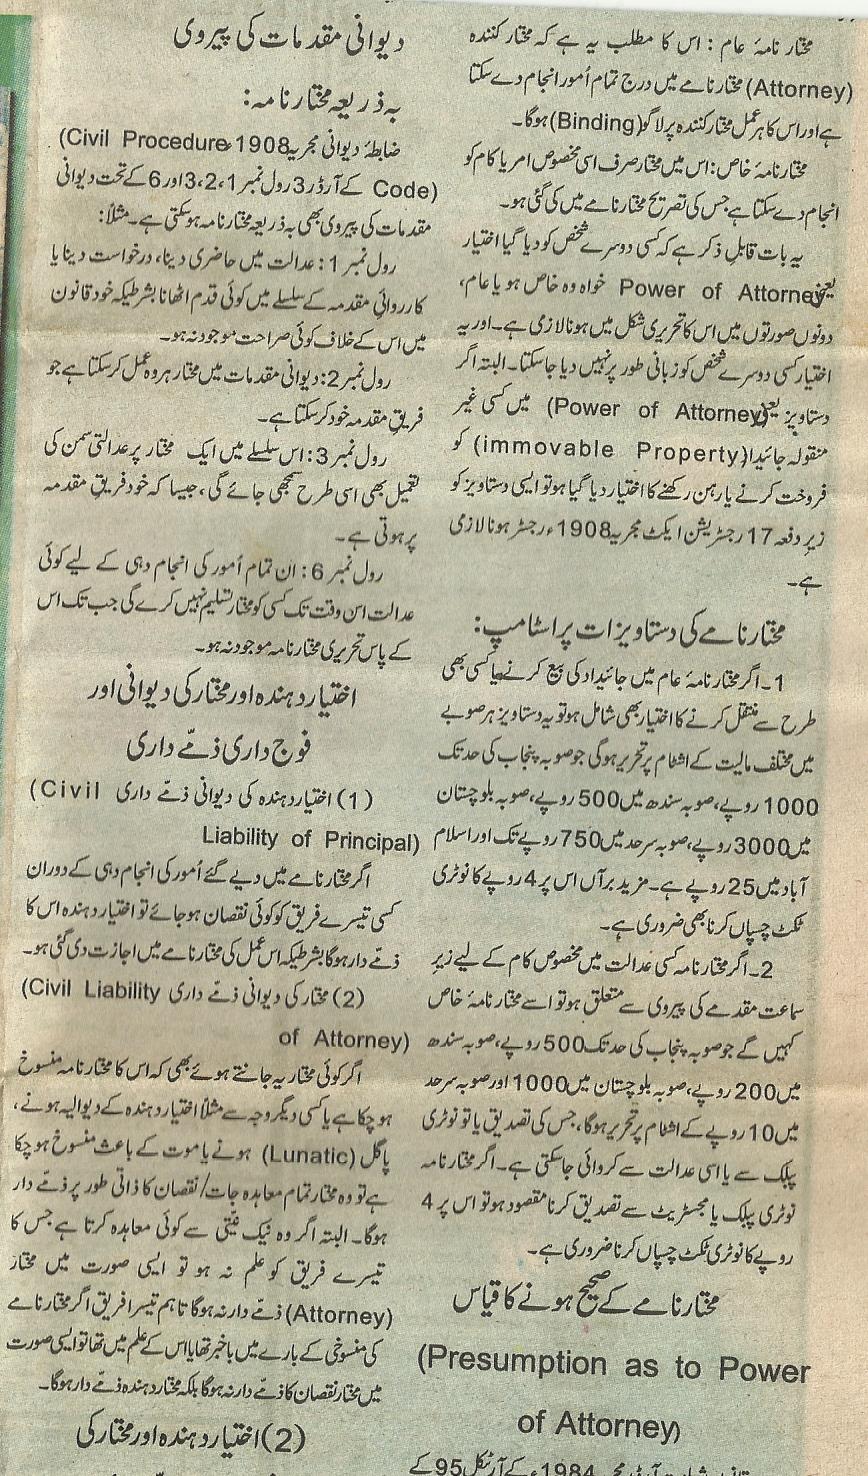 مختار نامۂ عام : اس کا مطلب یہ ہے کہ مختار کنندہ
(Attorney) مختارنامے میں درج تمام اُمور انجام دے سکتا
ہے اور اس کا ہر عمل مختار کنندہ پر لاگو(Binding) ہوگا۔
مختار نامۂ خاص: اس میں مختار صرف اسی مخصوص امر یا کام کو
انجام دے سکتا ہے جس کی تصریح مختارنامے میں کی گئی ہو۔
یہ بات قابلِ ذکر ہے کہ کسی دوسرے شخص کو دیا گیا اختیار
یعنی Power of Attorney خواہ وہ خاص ہو یا عام،
دونوں صورتوں میں اس کا تحریری شکل میں ہونا لازمی ہے۔ اور یہ
اختیار کسی دوسرے شخص کو زبانی طور پر نہیں دیا جاسکتا۔ البتہ اگر
دستاویز یعنی (Power of Attorney) میں کسی غیر
منقولہ جائیداد(immovable Property) کو
فروخت کرنے یا رہن رکھنے کا اختیار دیا گیا ہو تو ایسی دستاویز کو
زیرِ دفعہ 17 رجسٹریشن ایکٹ مجریہ 1908ء رجسٹر ہونا لازمی
ہے۔
مختارنامے کی دستاویزات پر اسٹامپ:
1۔ اگر مختار نامۂ عام میں جائیداد کی بیع کرنے یا کسی بھی
طرح سے منتقل کرنے کا اختیار بھی شامل ہو تو یہ دستاویز ہر صوبے
میں مختلف مالیت کے اشٹام پر تحریر ہوگی جو صوبہ پنجاب کی حد تک
1000 روپے، صوبہ سندھ میں 500 روپے، صوبہ بلوچستان
میں 3000 روپے، صوبہ سرحد میں 750 روپے تک اور اسلام
آباد میں 25 روپے ہے۔ مزید برآں اس پر 4 روپے کا نوٹری
ٹکٹ چسپاں کرنا بھی ضروری ہے۔
2۔ اگر مختار نامہ کسی عدالت میں مخصوص کام کے لیے زیرِ
سماعت مقدمے کی پیروی سے متعلق ہو تو اسے مختار نامۂ خاص
کہیں گے جو صوبہ پنجاب کی حد تک 500 روپے، صوبہ سندھ
میں 200 روپے، صوبہ بلوچستان میں 1000 اور صوبہ سرحد
میں 10 روپے کے اشٹام پر تحریر ہوگا، جس کی تصدیق یا تو نوٹری
پبلک سے یا اسی عدالت سے کروائی جاسکتی ہے۔ اگر مختار نامہ
نوٹری پبلک یا مجسٹریٹ سے تصدیق کرنا مقصود ہو تو اس پر 4
روپے کا نوٹری ٹکٹ چسپاں کرنا ضروری ہے۔
مختارنامے کے صحیح ہونے کا قیاس
(Presumption as to Power
of Attorney)
1984ء کے آرٹیکل 95 کے
دیوانی مقدمات کی پیروی
بہ ذریعہ مختار نامہ:
ضابطۂ دیوانی مجریہ 1908ء (Civil Procedure
Code) کے آرڈر 3 رول نمبر 1،2،3 اور 6 کے تحت دیوانی
مقدمات کی پیروی بھی بہ ذریعہ مختار نامہ ہوسکتی ہے۔ مثلاً:
رول نمبر 1: عدالت میں حاضری دینا، درخواست دینا یا
کارروائیِ مقدمہ کے سلسلے میں کوئی قدم اٹھانا بشرطیکہ خود قانون
میں اس کے خلاف کوئی صراحت موجود نہ ہو۔
رول نمبر 2: دیوانی مقدمات میں مختار ہر وہ عمل کرسکتا ہے جو
فریقِ مقدمہ خود کرسکتا ہے۔
رول نمبر 3: اس سلسلے میں ایک مختار پر عدالتی سمن کی
تعمیل بھی اسی طرح سمجھی جائے گی، جیسا کہ خود فریقِ مقدمہ
پر ہوتی ہے۔
رول نمبر 6: ان تمام اُمور کی انجام دہی کے لیے کوئی
عدالت اس وقت تک کسی کو مختار تسلیم نہیں کرے گی جب تک اس
کے پاس تحریری مختار نامہ موجود نہ ہو۔
اختیار دہندہ اور مختار کی دیوانی اور
فوج داری ذمّے داری
(1) اختیار دہندہ کی دیوانی ذمّے داری (Civil
Liability of Principal)
اگر مختارنامے میں دیے گئے اُمور کی انجام دہی کے دوران
کسی تیسرے فریق کو کوئی نقصان ہوجائے تو اختیار دہندہ اس کا
ذمّے دار ہوگا بشرطیکہ اس عمل کی مختارنامے میں اجازت دی گئی ہو۔
(2) مختار کی دیوانی ذمّے داری (Civil Liability
of Attorney)
اگر کوئی مختار یہ جانتے ہوئے بھی کہ اس کا مختار نامہ منسوخ
ہوچکا ہے یا کسی دیگر وجہ سے مثلاً اختیار دہندہ کے دیوالیہ ہونے،
پاگل (Lunatic) ہونے یا موت کے باعث منسوخ ہوچکا
ہے تو وہ مختار تمام معاہدہ جات/نقصان کا ذاتی طور پر ذمّے دار
ہوگا۔ البتہ اگر وہ نیک نیّتی سے کوئی معاہدہ کرتا ہے جس کا
تیسرے فریق کو علم نہ ہو تو ایسی صورت میں مختار
(Attorney) ذمّے دار نہ ہوگا تاہم تیسرا فریق اگر مختارنامے
کی منسوخی کے بارے میں باخبر تھا یا اس کے علم میں تھا تو ایسی صورت
میں مختار نقصان کا ذمّے دار نہ ہوگا بلکہ مختار دہندہ ذمّے دار ہوگا۔
(2) اختیار دہندہ اور مختار کی